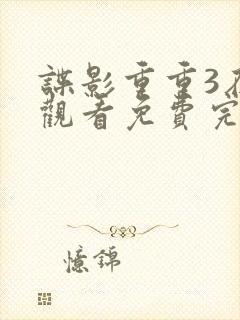 諜影重重3
觀看免費完
憶錦